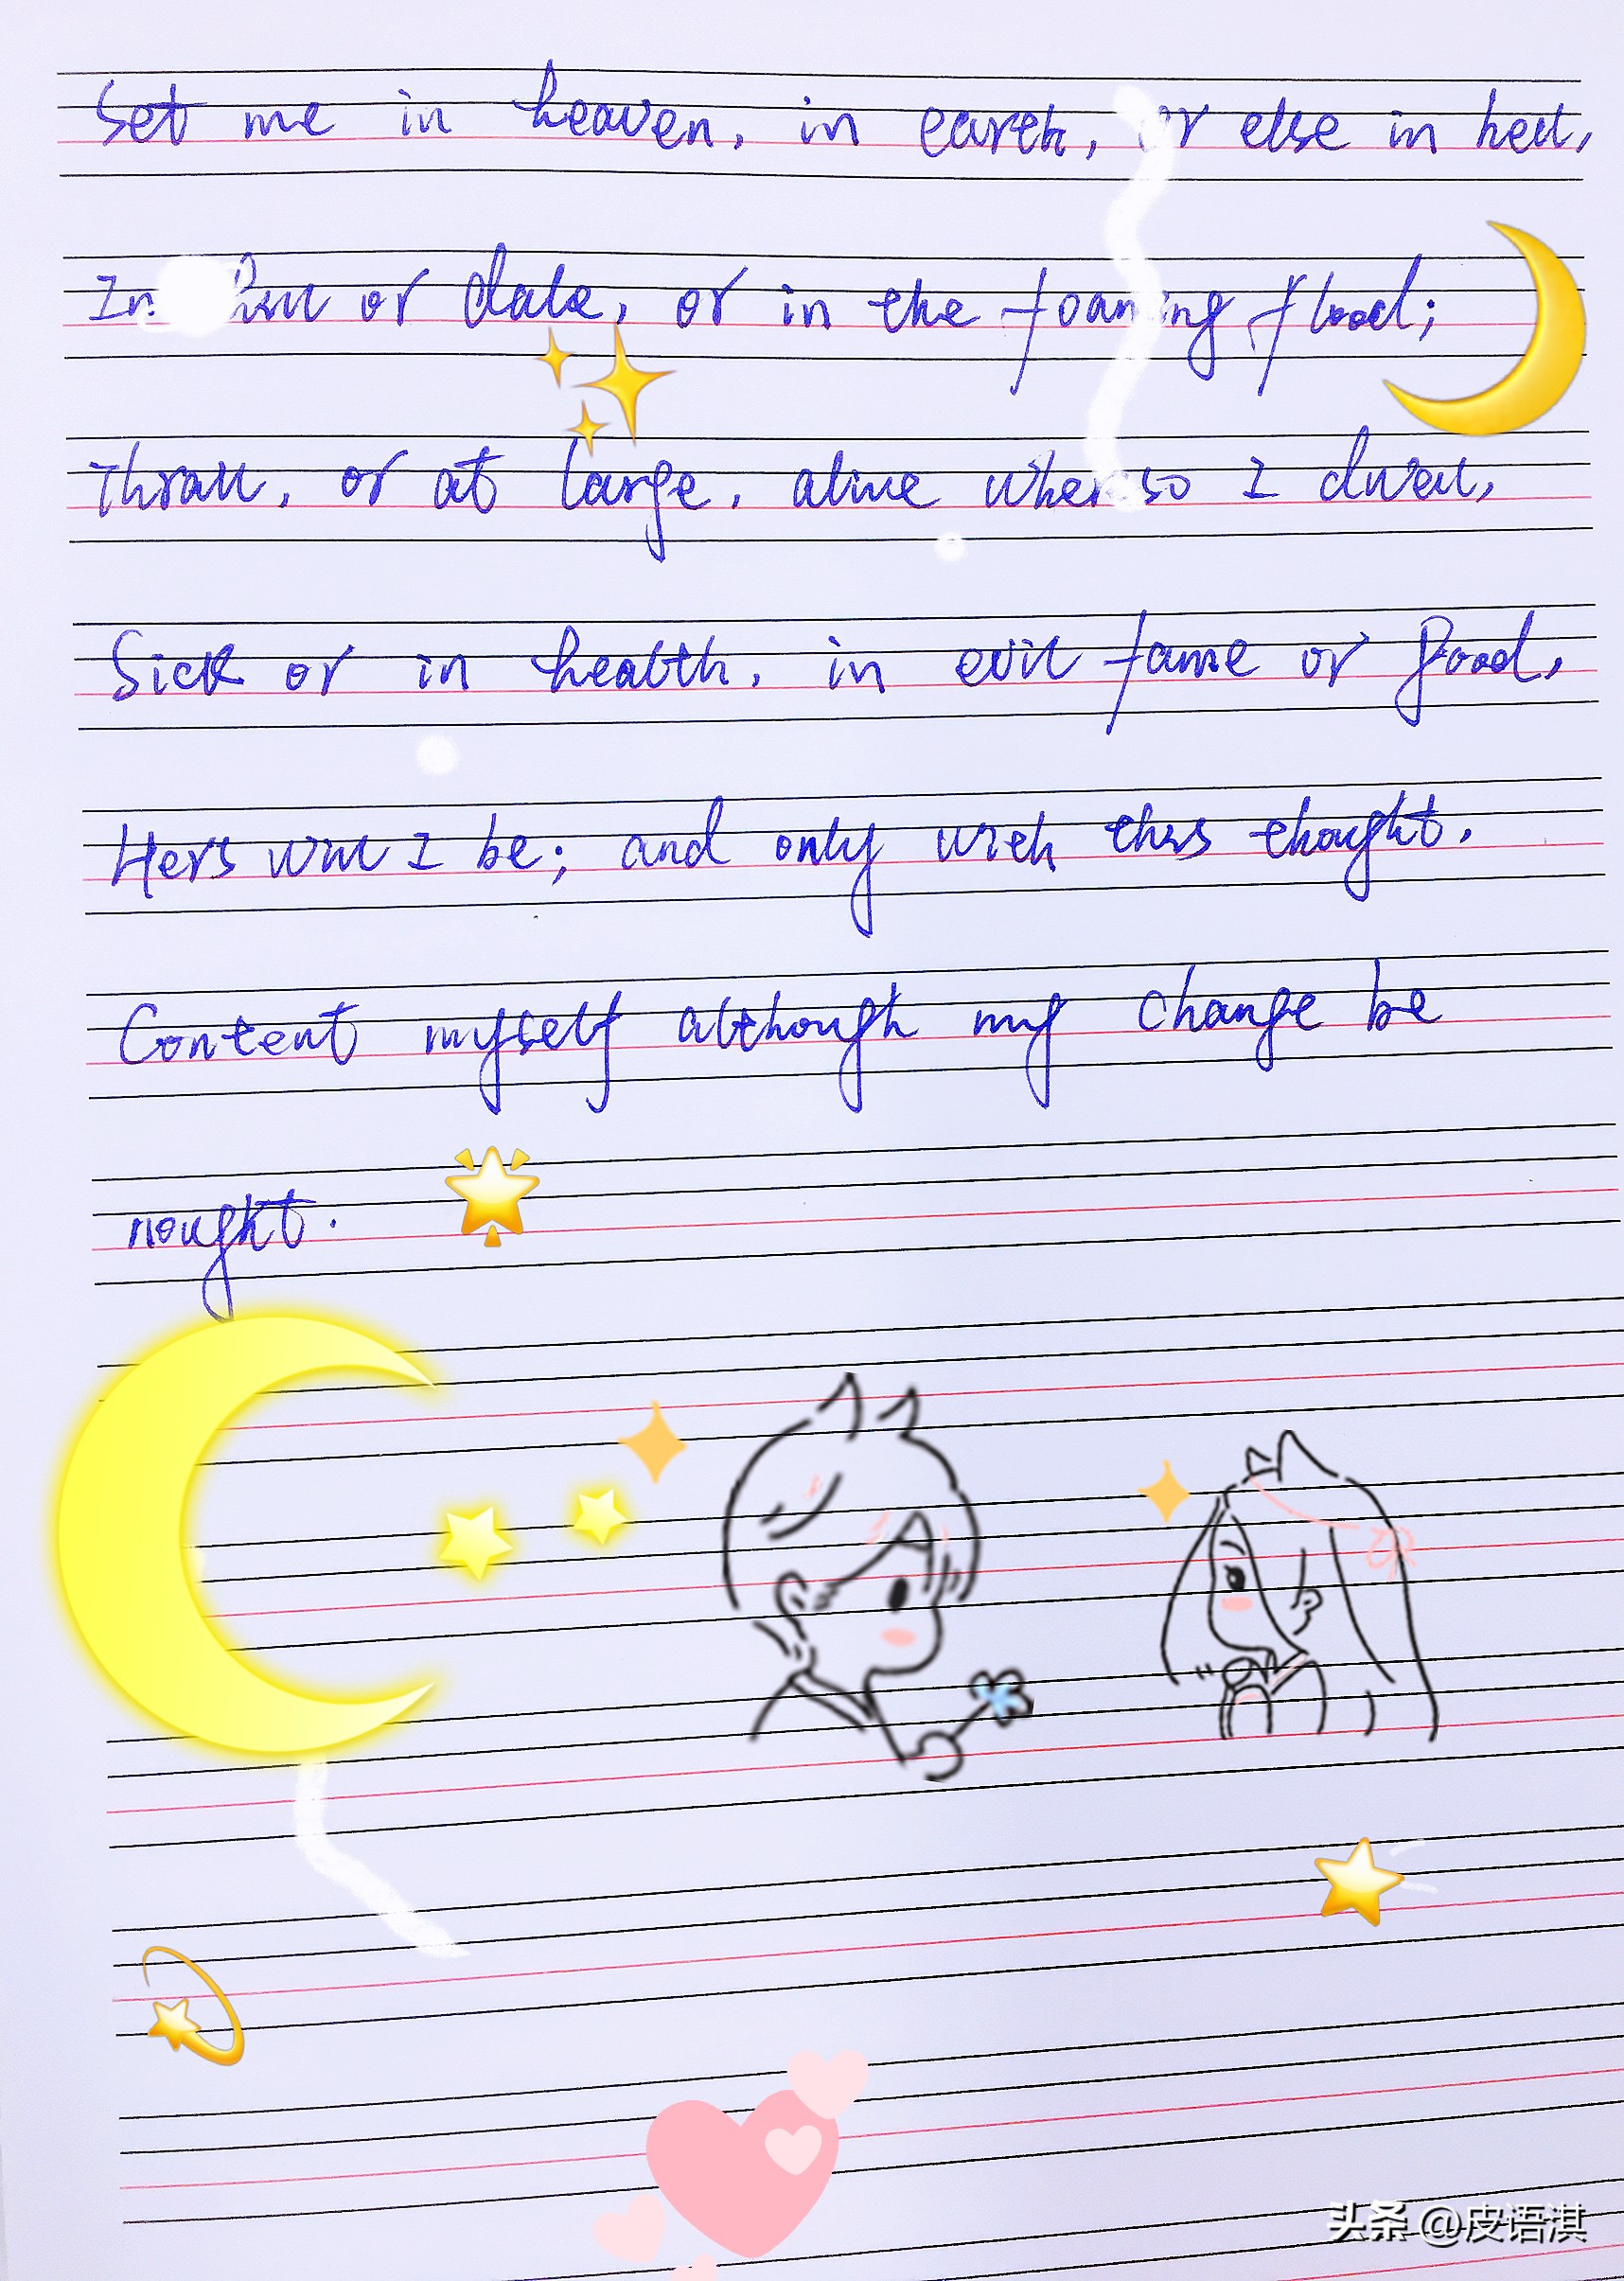 Set me in heaven, in earth, or else in hell,
In hill or dale, or in the foaming flood;
Thrall, or at large, alive whereso I dwell,
Sick or in health, in evil fame or good,
Hers will I be; and only with this thought.
Content myself although my change be
nought.
头条 @皮语淇